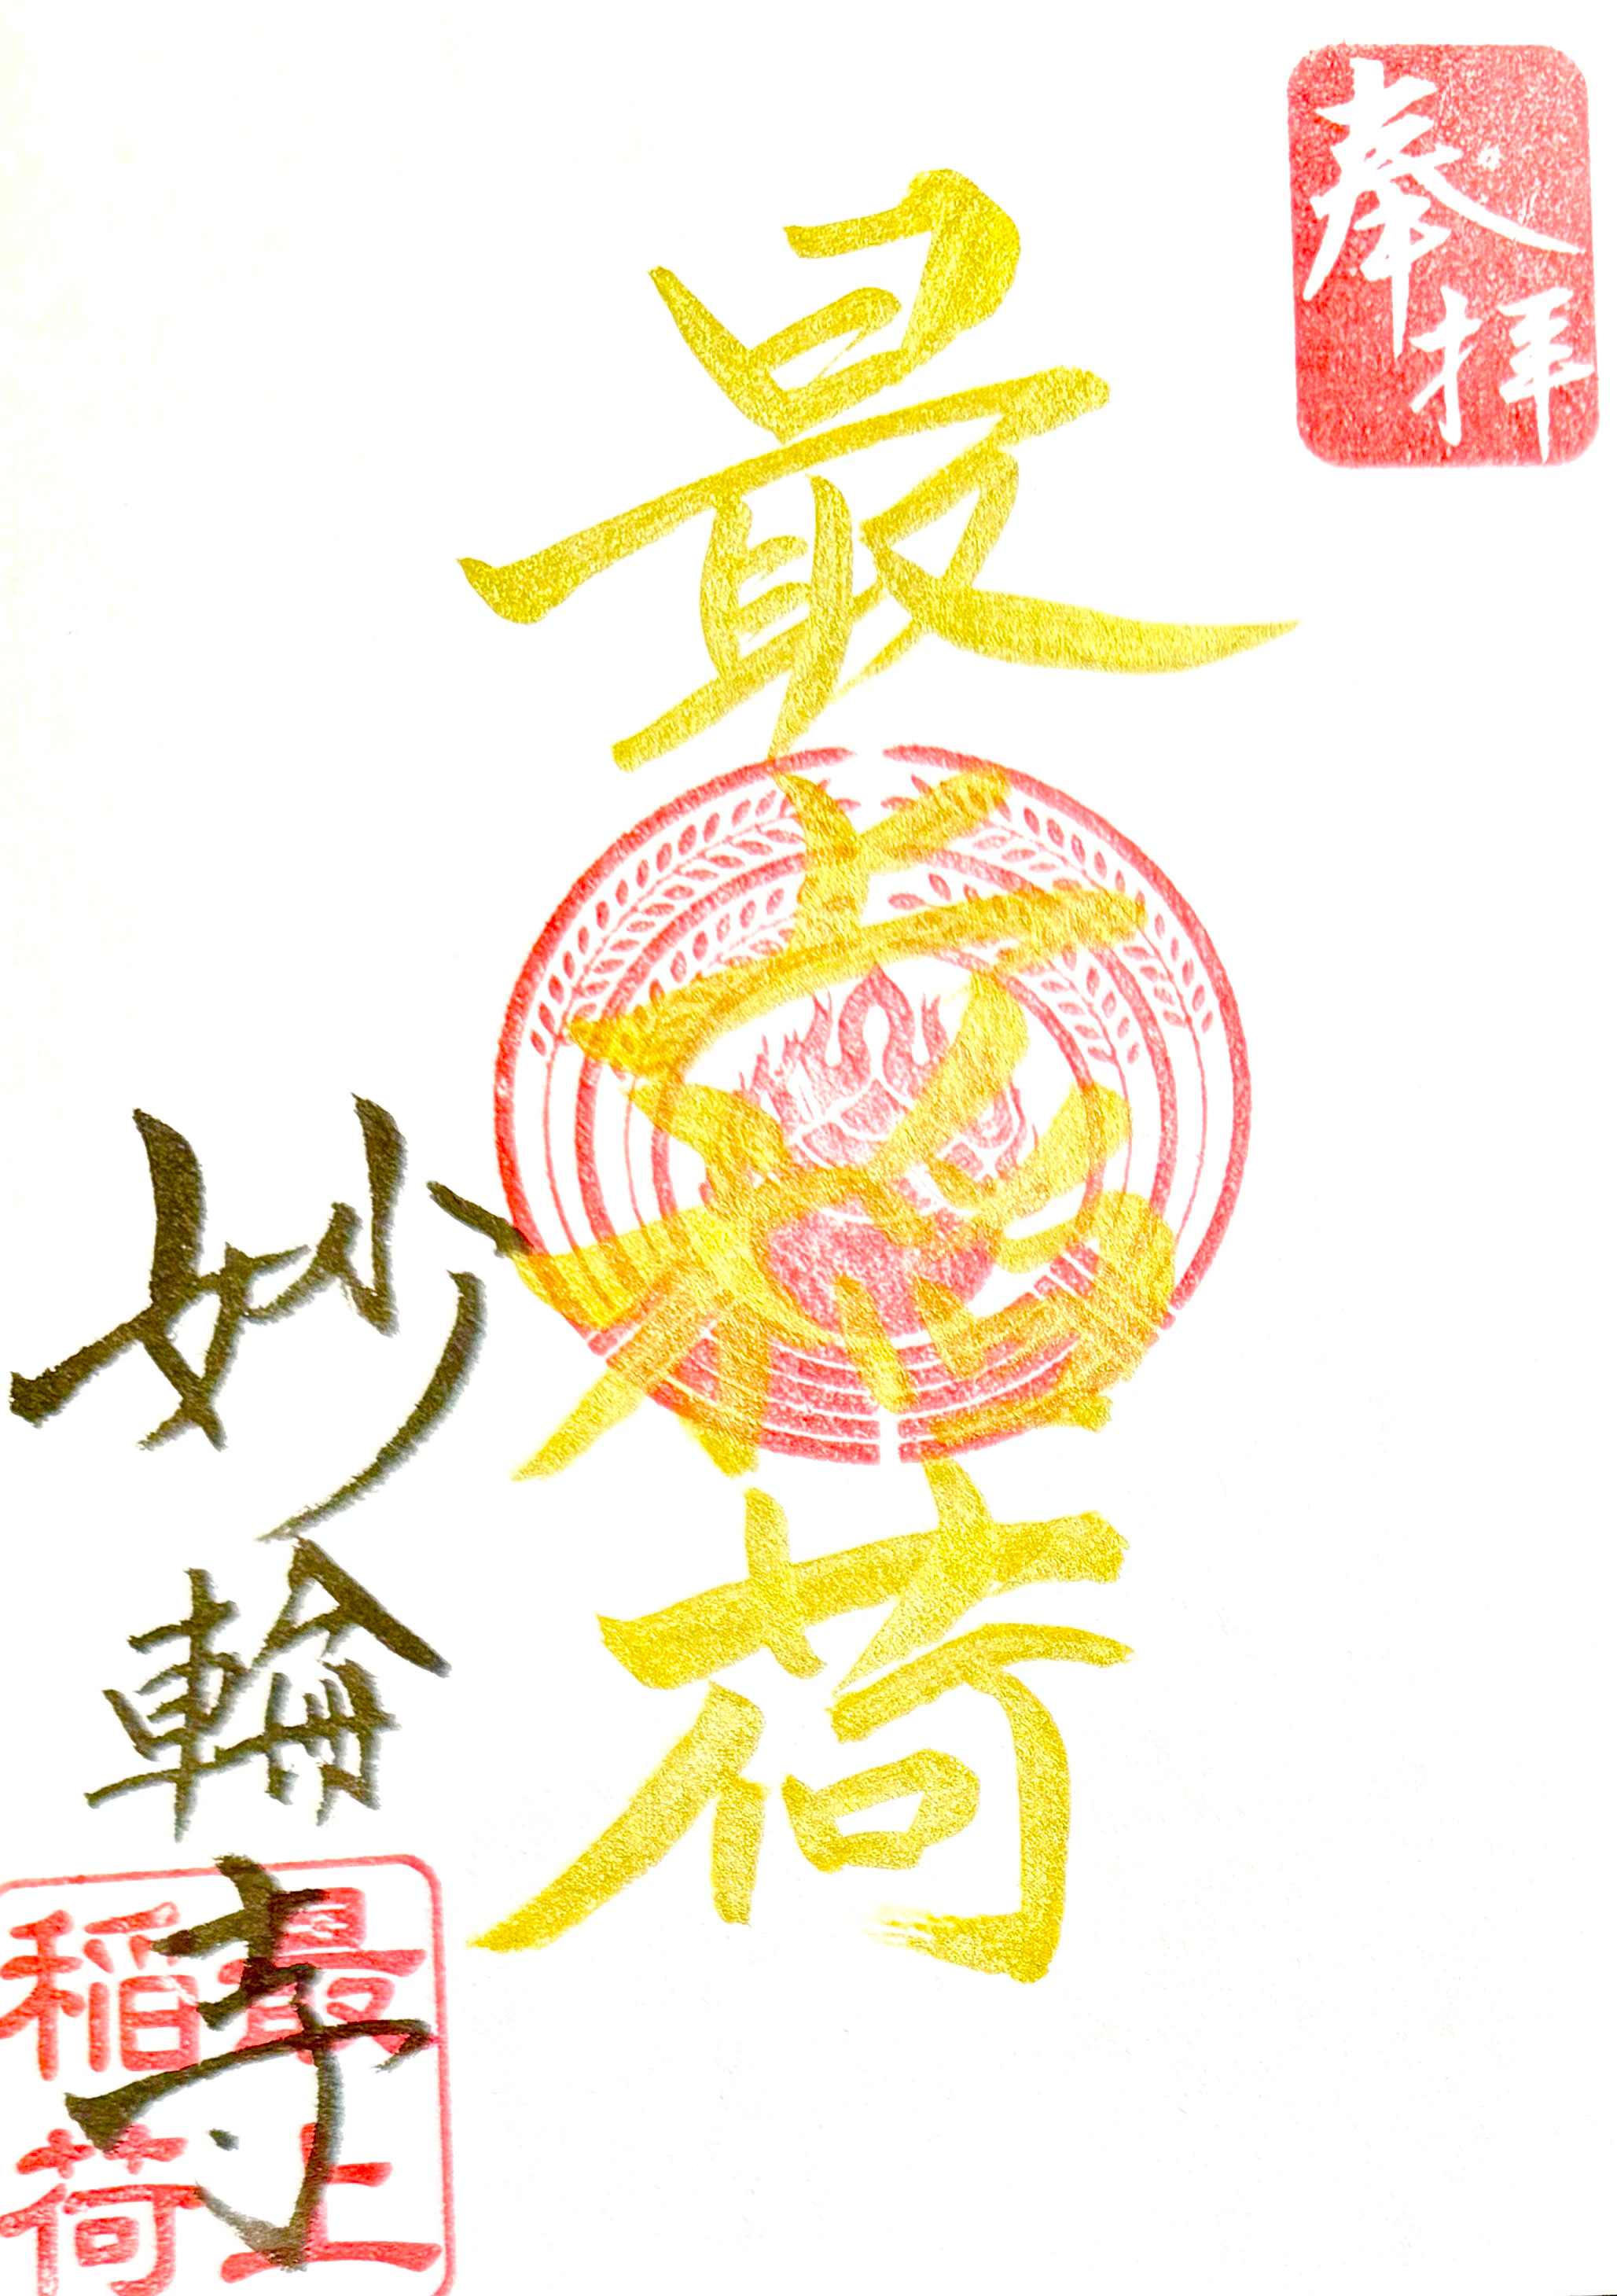 奉拝
最上稲荷
妙輪寺
最上
稲荷